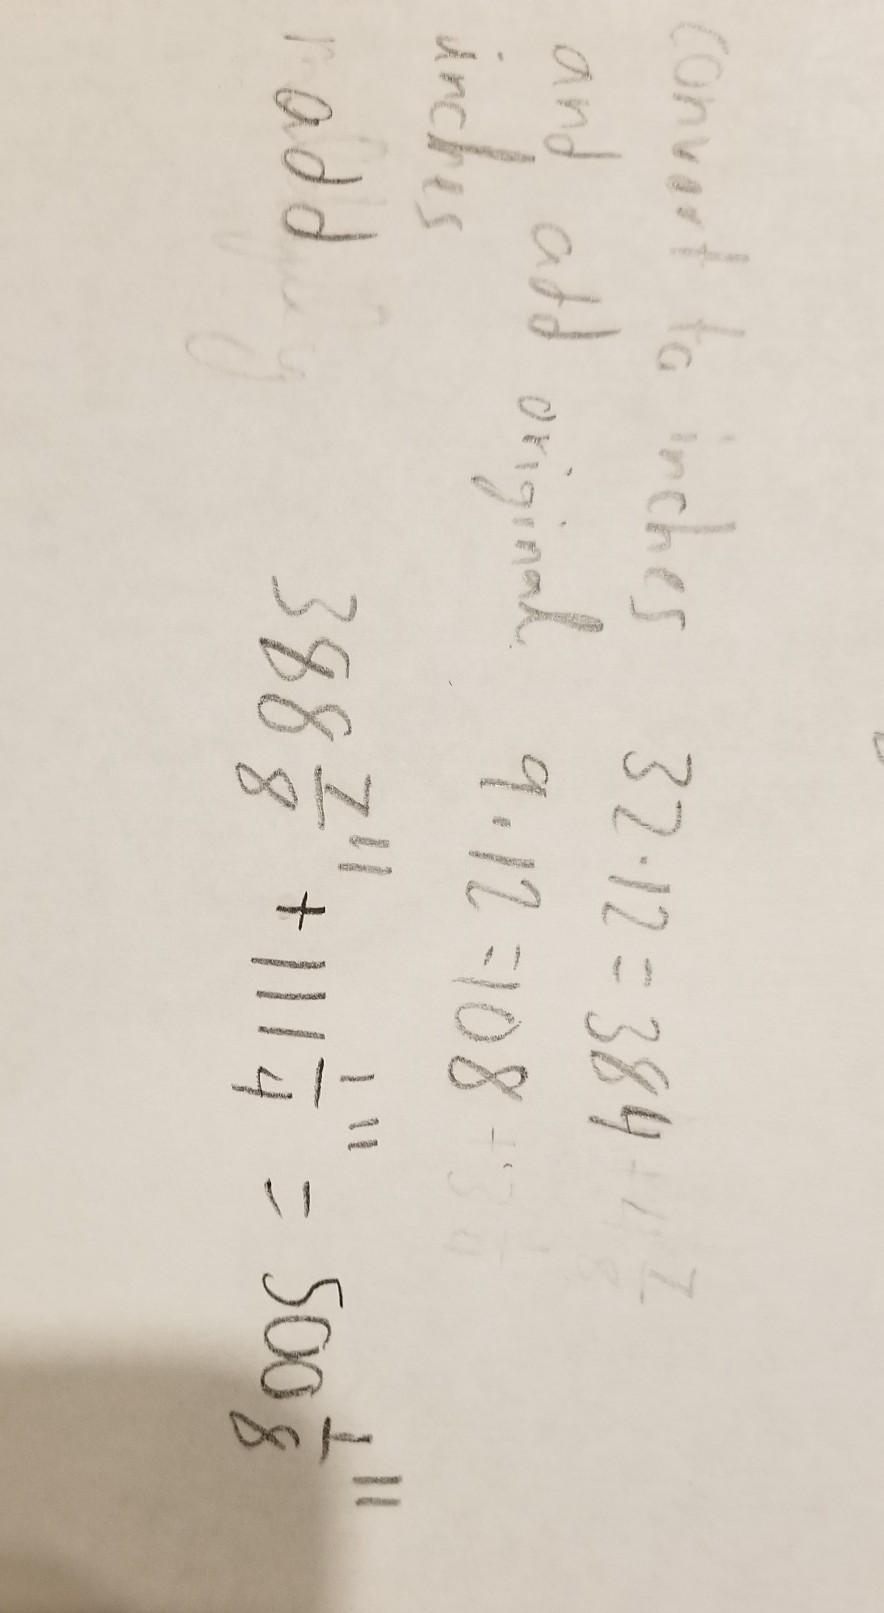 convert to inches 32·12=384+4 7/8
and add original 9·12=108+3 1/4
inches
add 388 7/8" +111 1/4" = 500 1/8"